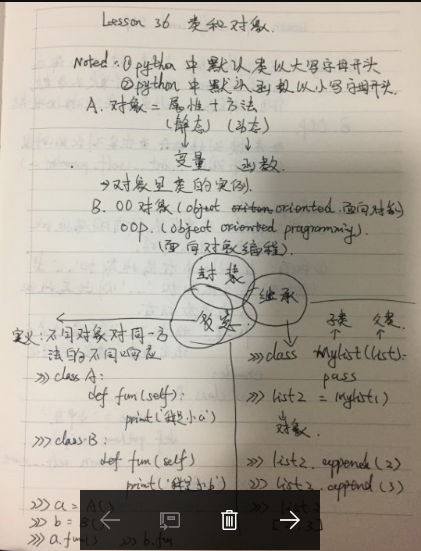 Lesson 36 类和对象.
Noted: ①python 中默认类以大写字母开头
②python 中默认函数以小写字母开头.
A. 对象 = 属性 + 方法
(静态) (动态)
变量 函数.
→对象是类的实例.
B. OO对象 (object oriented. 面向对象)
OOP. (object oriented programming).
(面向对象编程).
封装
继承
多态.
定义: 不同对象对同一方
法的不同响应
>>> class A:
def fun(self):
print('我是小a')
>>> class B:
def fun(self)
print('我是小b')
>>> a = A()
>>> b = B()
>>> a.fun() >>> b.fun
子类 父类.
>>> class Mylist(list):
pass
>>> list2 = Mylist()
对象.
>>> list2.append(2)
>>> list2.append(3)
>>> list2